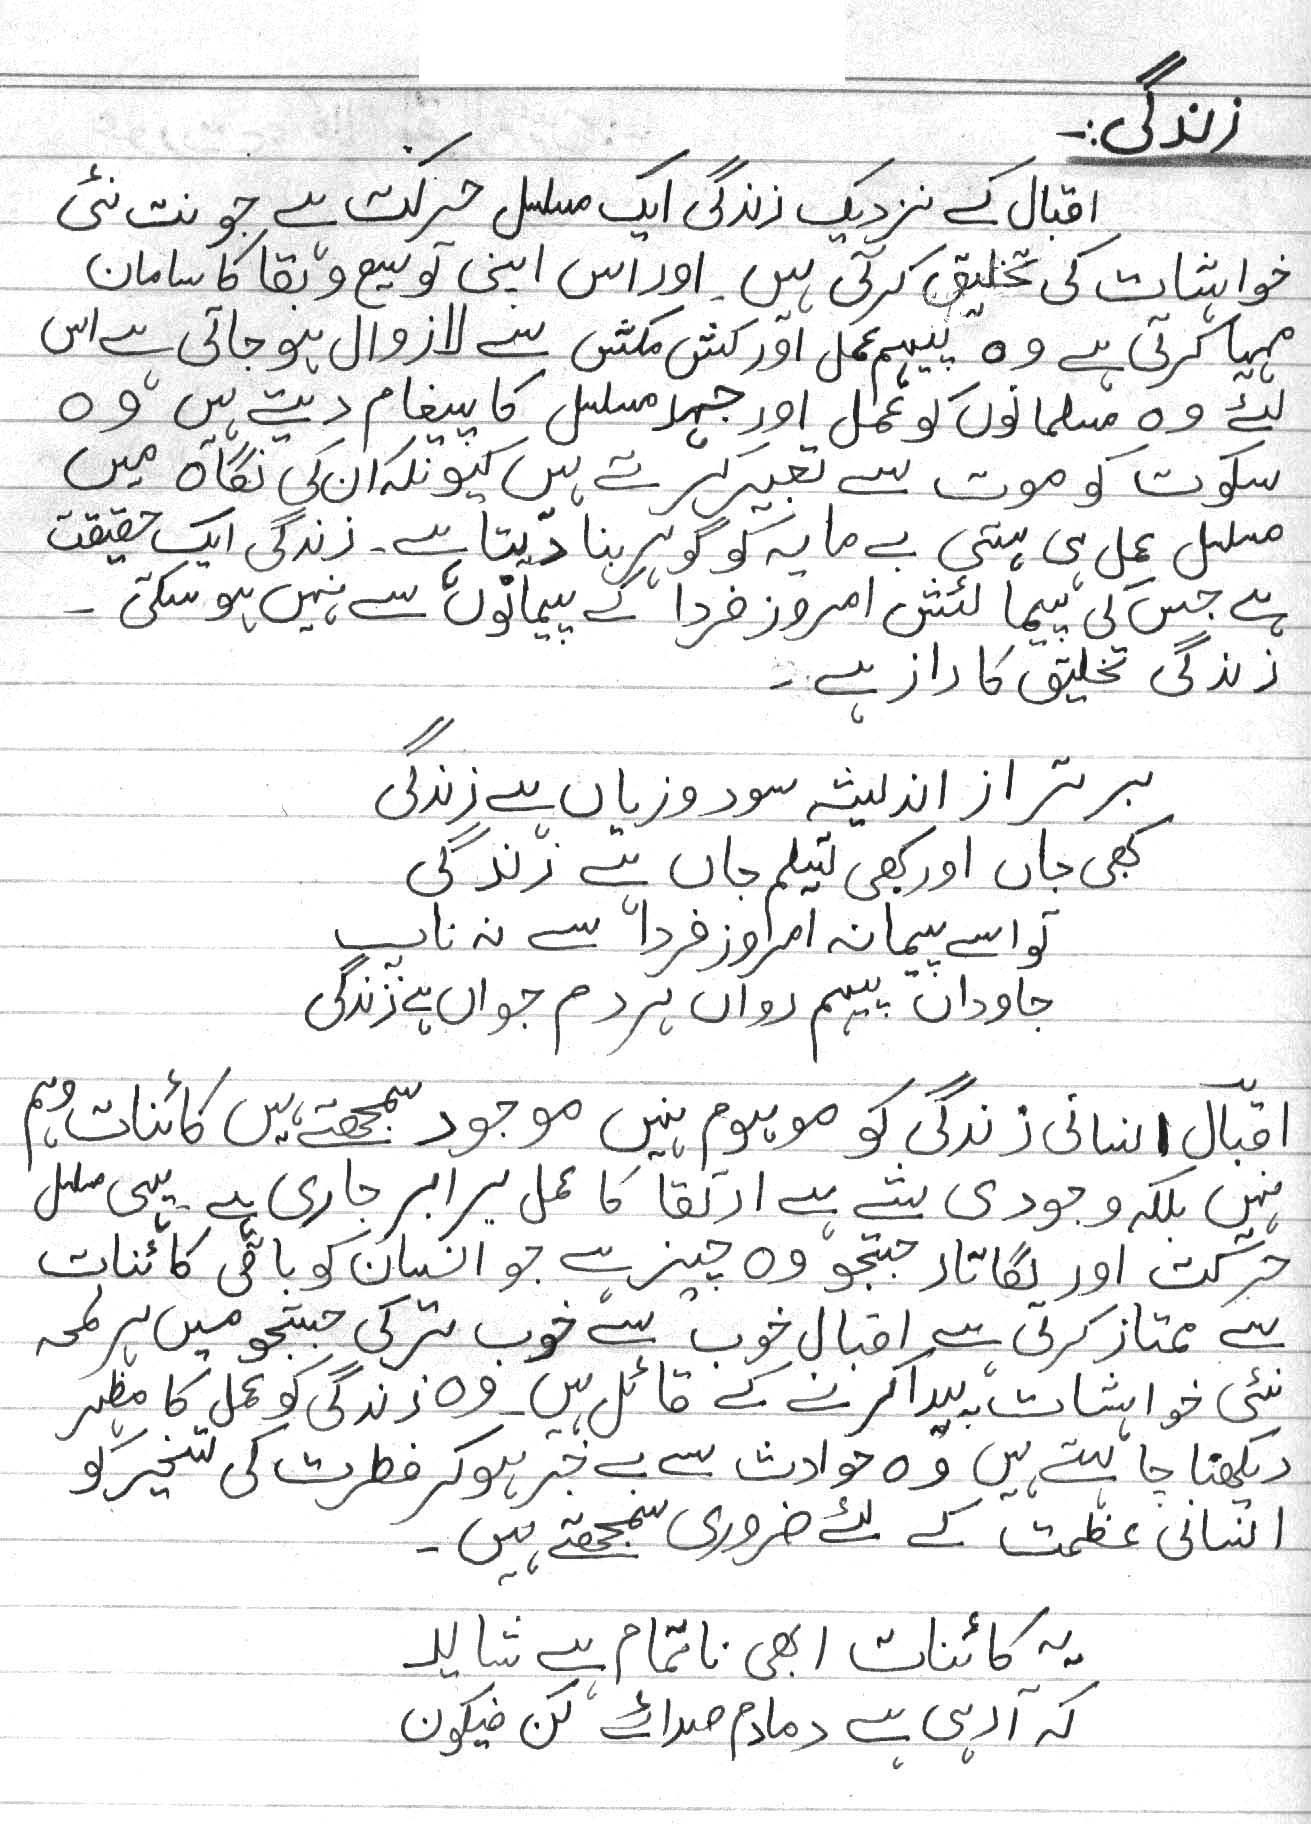 زندگی :-
اقبال کے نزدیک زندگی ایک مسلسل حرکت ہے جو نت نئی
خواہشات کی تخلیق کرتی ہیں۔ اور اس اپنی توسیع و بقا کا سامان
مہیا کرتی ہے وہ پیہم عمل اور کش مکش سے لازوال ہو جاتی ہے اس
لئے وہ مسلمانوں کو عمل اور جہد مسلسل کا پیغام دیتے ہیں وہ
سکوت کو موت سے تعبیر کرتے ہیں کیونکہ ان کی نگاہ میں
مسلسل عمل ہی ہستی بے مایہ کو گوہر بنا دیتا ہے۔ زندگی ایک حقیقت
ہے جس کی پیمائش امروز فردا کے پیمانوں سے نہیں ہو سکتی ۔
زندگی تخلیق کا راز ہے ۔
برتر از اندیشہ سود و زیاں ہے زندگی
کبھی جاں اور کبھی تسلیم جاں ہے زندگی
تو اسے پیمانہ امروز فردا سے نہ ناپ
جاوداں پیہم رواں ہر دم جواں ہے زندگی
اقبال انسانی زندگی کو موہوم نہیں موجود سمجھتے ہیں کائنات وہم
نہیں بلکہ وجودی شے ہے ارتقا کا عمل برابر جاری ہے۔ یہی مسلسل
حرکت اور لگاتار جستجو وہ چیز ہے جو انسان کو باقی کائنات
سے ممتاز کرتی ہے اقبال خوب سے خوب تر کی جستجو میں ہر لمحہ
نئی خواہشات پیدا کرنے کے قائل ہیں۔ وہ زندگی کو عمل کا مظہر
دیکھنا چاہتے ہیں وہ حوادث سے بے خبر ہو کر فطرت کی تسخیر کو
انسانی عظمت کے لئے ضروری سمجھتے ہیں ۔
یہ کائنات ابھی ناتمام ہے شاید
کہ آرہی ہے دمادم صدائے کن فیکون